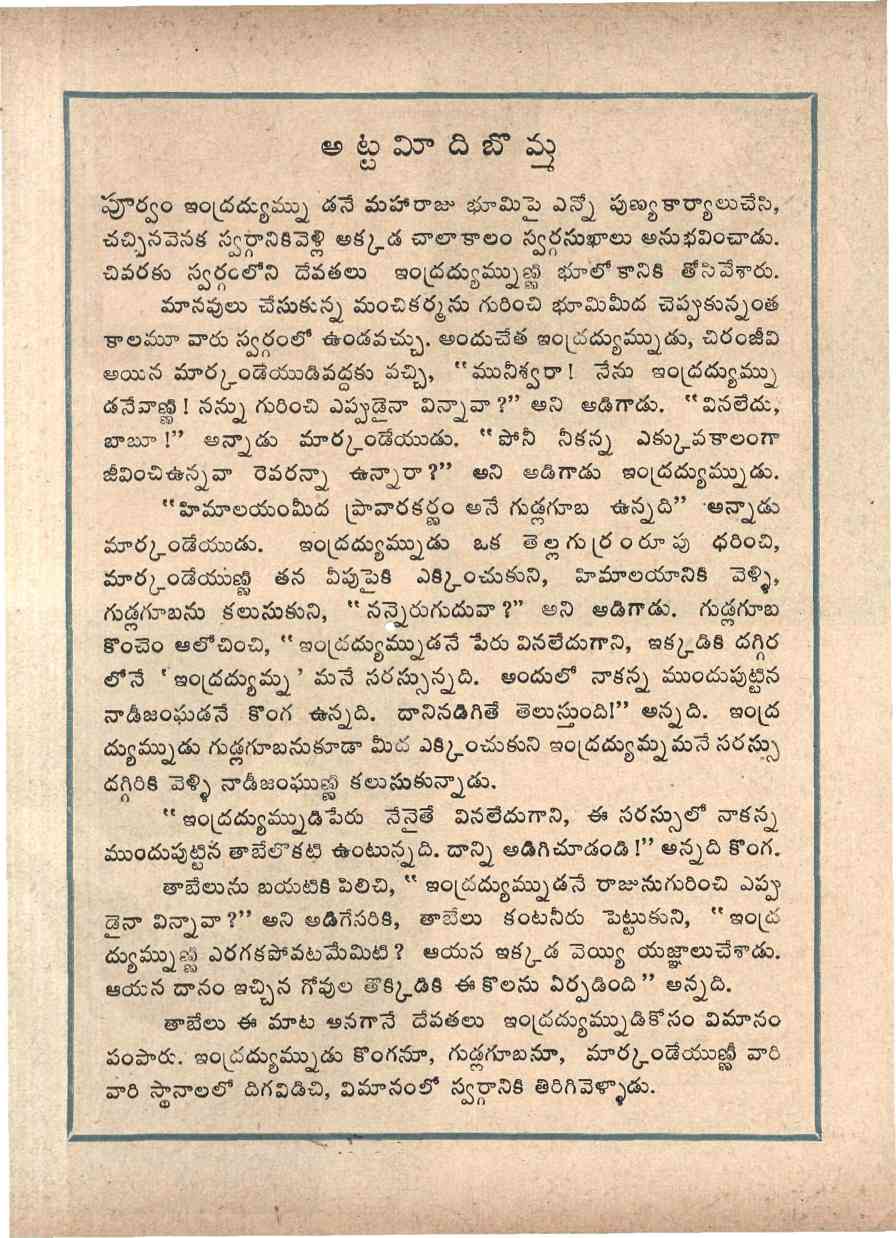 అట్టమీదిబొమ్మ
పూర్వం ఇంద్రద్యుమ్ను డనే మహారాజు భూమిపై ఎన్నో పుణ్యకార్యాలుచేసి,
చచ్చినవెనక స్వర్గానికివెళ్లి అక్కడ చాలాకాలం స్వర్గసుఖాలు అనుభవించాడు.
చివరకు స్వర్గంలోని దేవతలు ఇంద్రద్యుమ్నుణ్ణి భూలోకానికి తోసివేశారు.
మానవులు చేసుకున్న మంచికర్మను గురించి భూమిమీద చెప్పుకున్నంత
కాలమూ వారు స్వర్గంలో ఉండవచ్చు. అందుచేత ఇంద్రద్యుమ్నుడు, చిరంజీవి
అయిన మార్కండేయుడివద్దకు వచ్చి, "మునీశ్వరా! నేను ఇంద్రద్యుమ్ను
డనేవాణ్ణి! నన్ను గురించి ఎప్పుడైనా విన్నావా?" అని అడిగాడు. "వినలేదు,
బాబూ!" అన్నాడు మార్కండేయుడు. "పోనీ నీకన్న ఎక్కువకాలంగా
జీవించిఉన్నవా రెవరన్నా ఉన్నారా?" అని అడిగాడు ఇంద్రద్యుమ్నుడు.
"హిమాలయంమీద ప్రావారకర్ణం అనే గుడ్లగూబ ఉన్నది" అన్నాడు
మార్కండేయుడు. ఇంద్రద్యుమ్నుడు ఒక తెల్లగుర్రంరూపు ధరించి,
మార్కండేయుణ్ణి తన వీపుపైకి ఎక్కించుకుని, హిమాలయానికి వెళ్ళి,
గుడ్లగూబను కలుసుకుని, "నన్నెరుగుదువా?" అని అడిగాడు. గుడ్లగూబ
కొంచెం ఆలోచించి, "ఇంద్రద్యుమ్నుడనే పేరు వినలేదుగాని, ఇక్కడికి దగ్గిర
లోనే 'ఇంద్రద్యుమ్న' మనే సరస్సున్నది. అందులో నాకన్న ముందుపుట్టిన
నాడీజంఘడనే కొంగ ఉన్నది. దానినడిగితే తెలుస్తుంది!" అన్నది. ఇంద్ర
ద్యుమ్నుడు గుడ్లగూబనుకూడా మీద ఎక్కించుకుని ఇంద్రద్యుమ్నమనే సరస్సు
దగ్గిరికి వెళ్ళి నాడీజంఘుణ్ణి కలుసుకున్నాడు.
"ఇంద్రద్యుమ్నుడిపేరు నేనైతే వినలేదుగాని, ఈ సరస్సులో నాకన్న
ముందుపుట్టిన తాబేలొకటి ఉంటున్నది. దాన్ని అడిగిచూడండి!" అన్నది కొంగ.
తాబేలును బయటికి పిలిచి, "ఇంద్రద్యుమ్నుడనే రాజునుగురించి ఎప్పు
డైనా విన్నావా?" అని అడిగేసరికి, తాబేలు కంటనీరు పెట్టుకుని, "ఇంద్ర
ద్యుమ్నుణ్ణి ఎరగకపోవటమేమిటి? ఆయన ఇక్కడ వెయ్యి యజ్ఞాలుచేశాడు.
ఆయన దానం ఇచ్చిన గోవుల తొక్కిడికి ఈ కొలను ఏర్పడింది" అన్నది.
తాబేలు ఈ మాట అనగానే దేవతలు ఇంద్రద్యుమ్నుడికోసం విమానం
పంపారు. ఇంద్రద్యుమ్నుడు కొంగనూ, గుడ్లగూబనూ, మార్కండేయుణ్ణీ వారి
వారి స్థానాలలో దిగవిడిచి, విమానంలో స్వర్గానికి తిరిగివెళ్ళాడు.